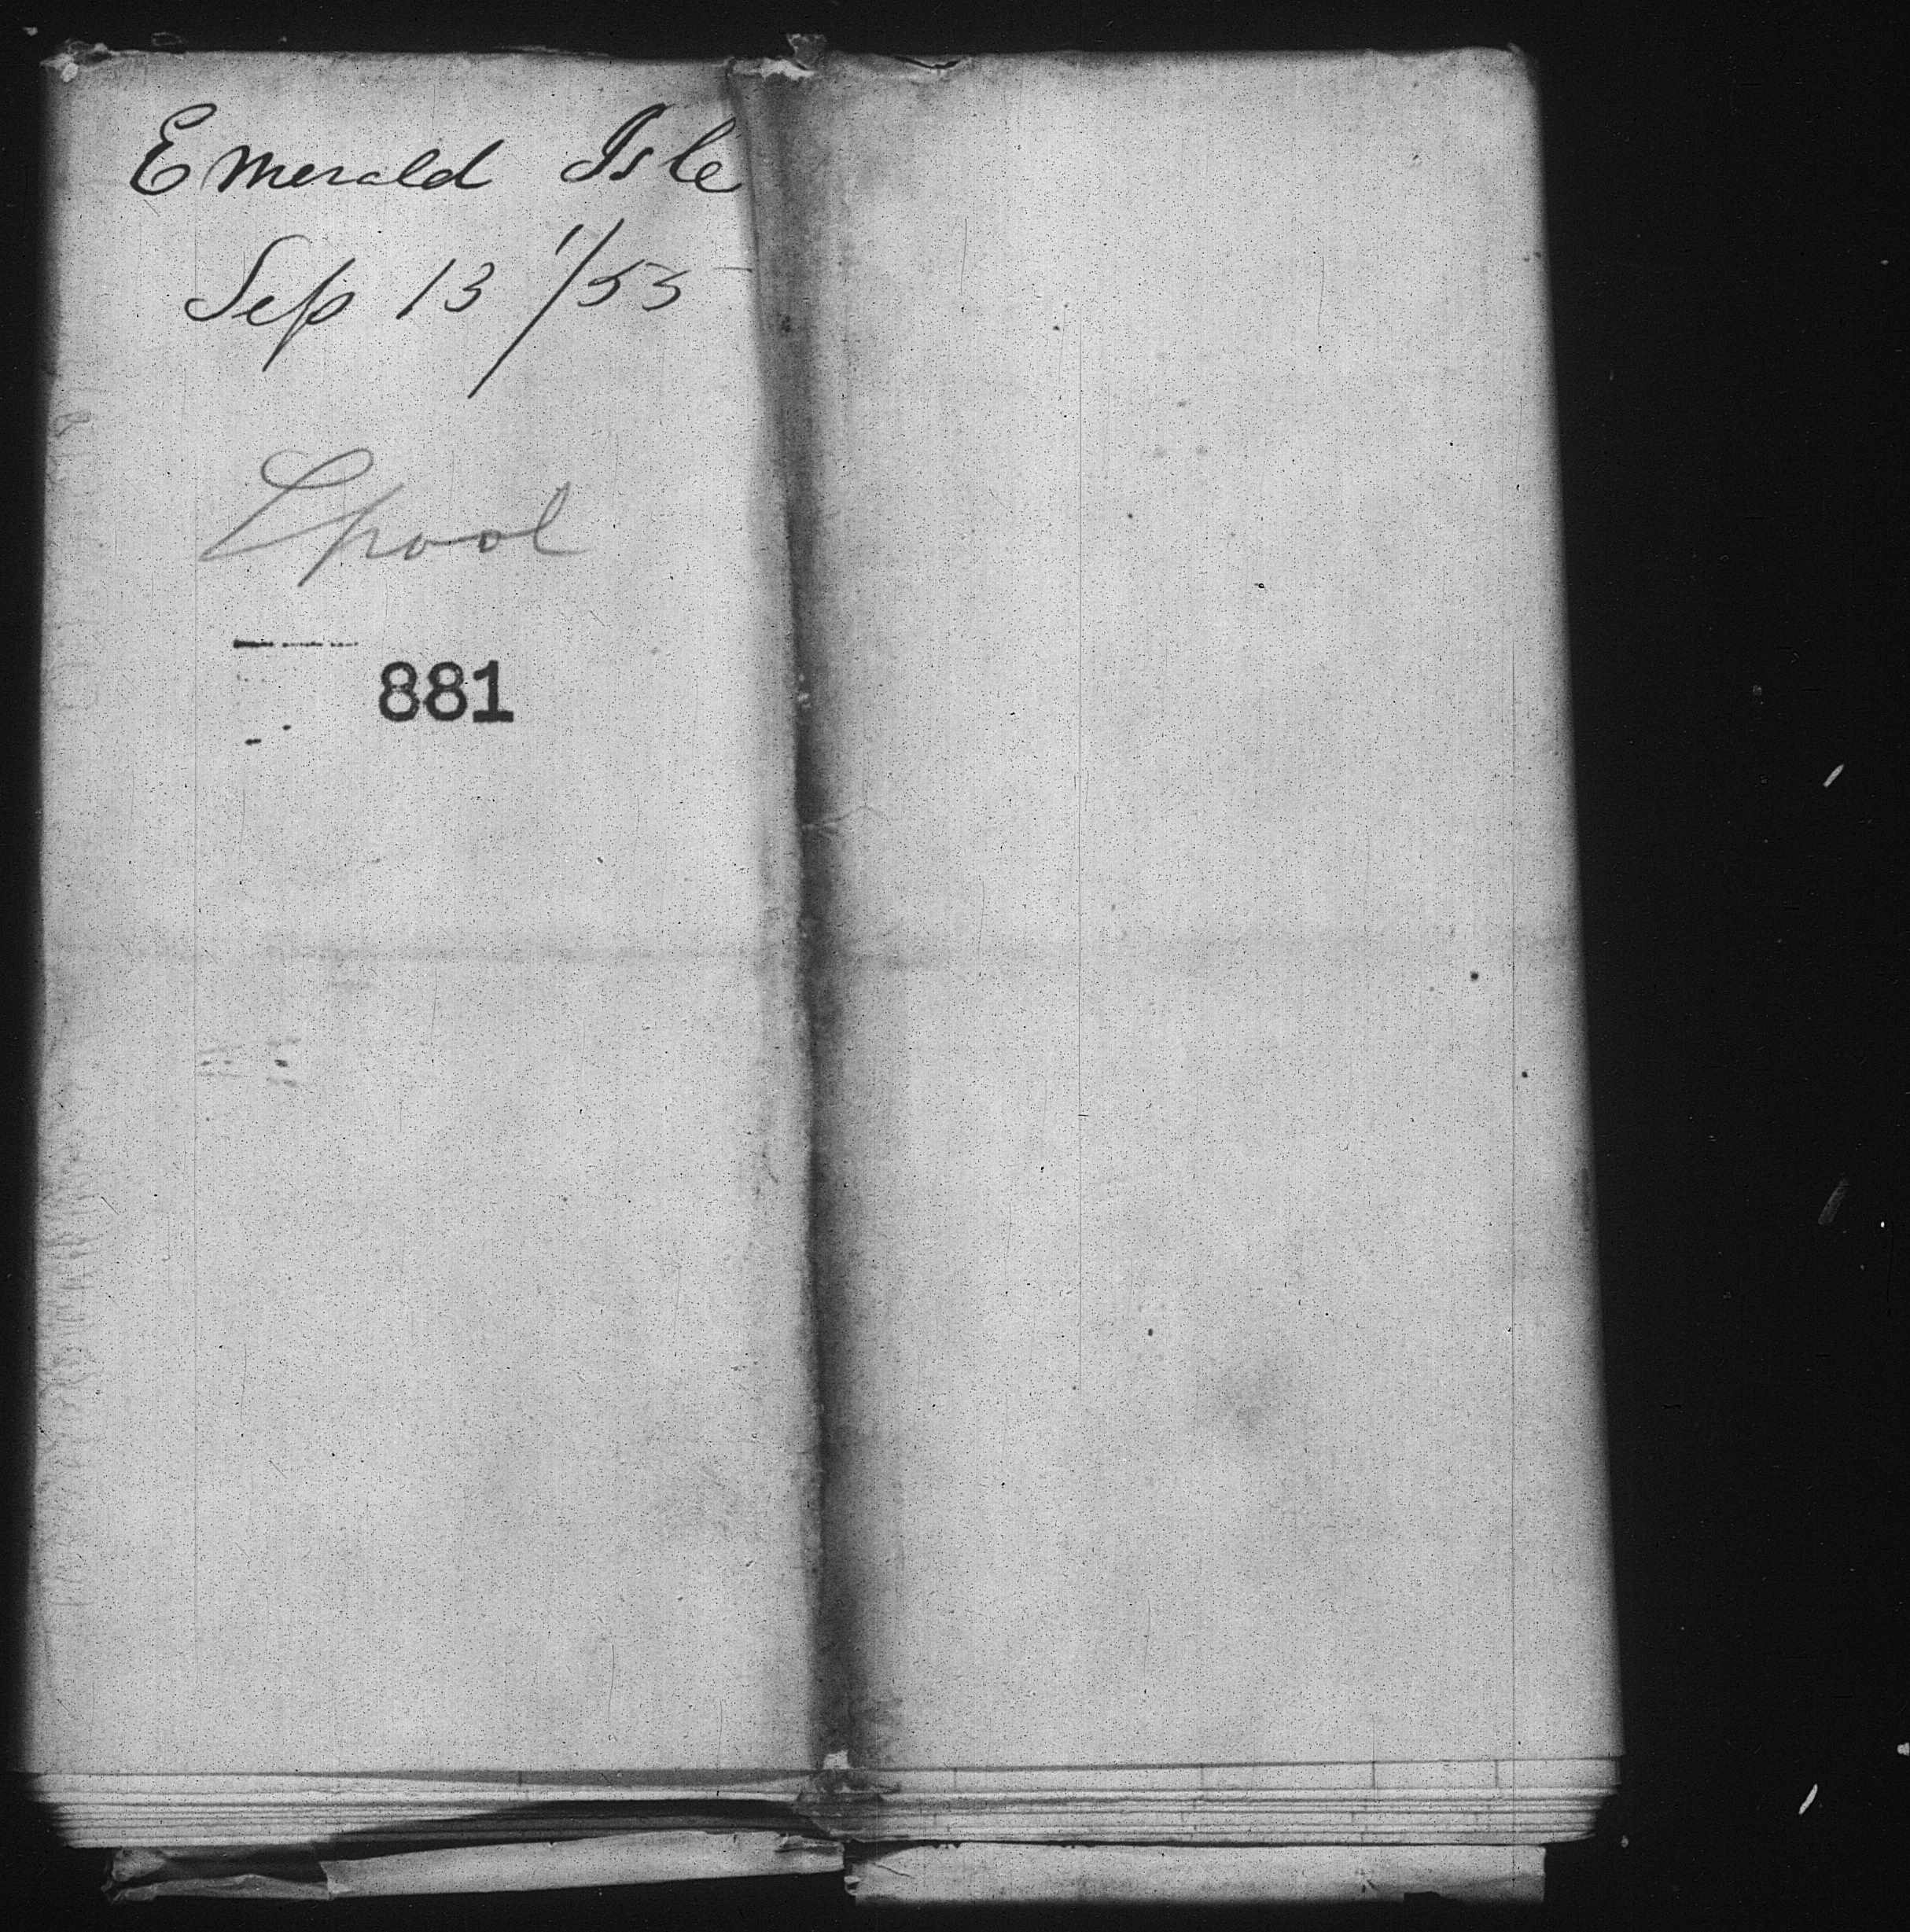 Emerald Isle
Sep 13 1/55
Lpool
881